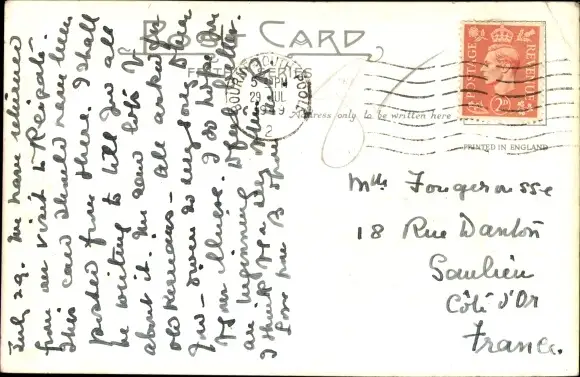 POST CARD
BOURNEMOUTH POOLE
29 JUL
Address only to be written here
POSTAGE REVENUE
2D
PRINTED IN ENGLAND
Mlle Fongerousse
18 Rue Danton
Saulieu
Côte d'Or
France.
July 29. We have returned
from our visit to Reigate.
This card should have been
posted from there. I shall
be writing to tell you all
about it. We saw lots of
old Remains - all asked for
you - were so sorry to hear
of your illness. I do hope you
are beginning to feel better.
I think it a very
Love from B